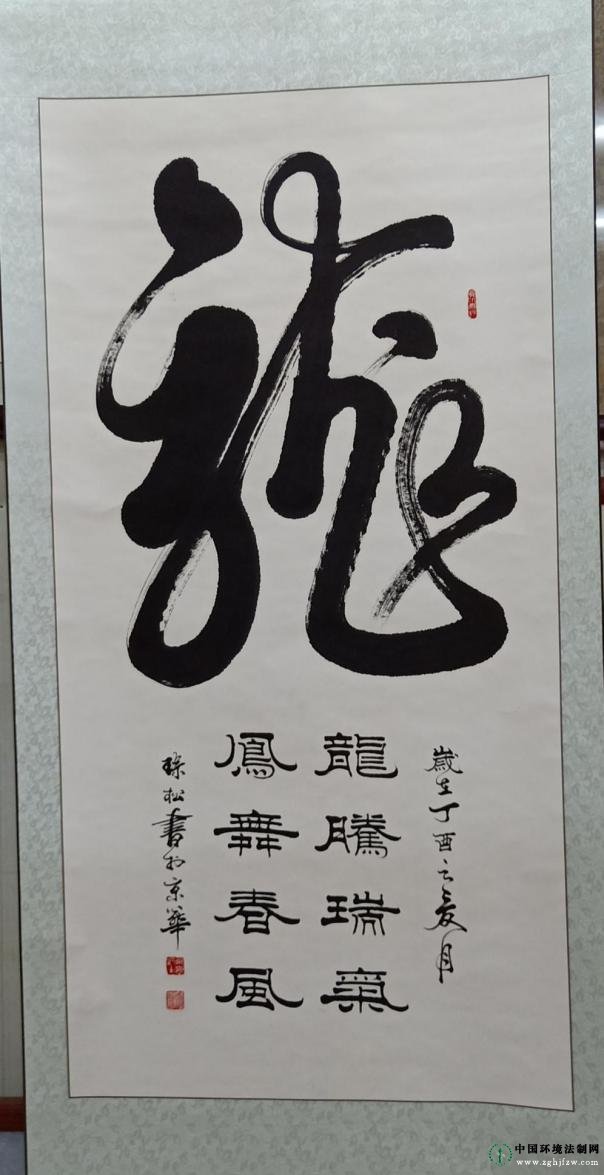 龍
歲在丁酉之夏月
龍騰瑞氣
鳳舞春風
松書於京華
中国环境法制网
www.zghjfzw.com